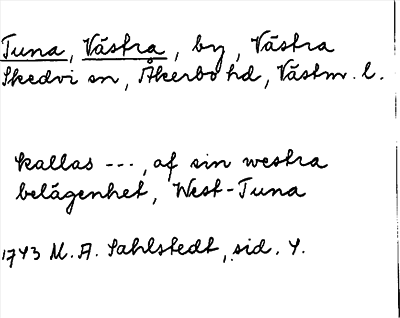 Tuna, Västra, by, Västra
Skedvi sn, Åkerbo hd, Västm. l.
kallas ---, af sin westra
belägenhet, West-Tuna
1743 M. A. Sahlstedt, sid. 4.